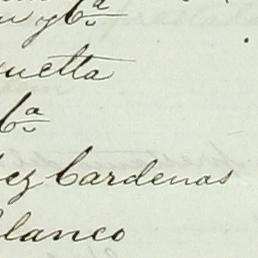 y Cª
uetta
Cª
ez Cardenas
Blanco